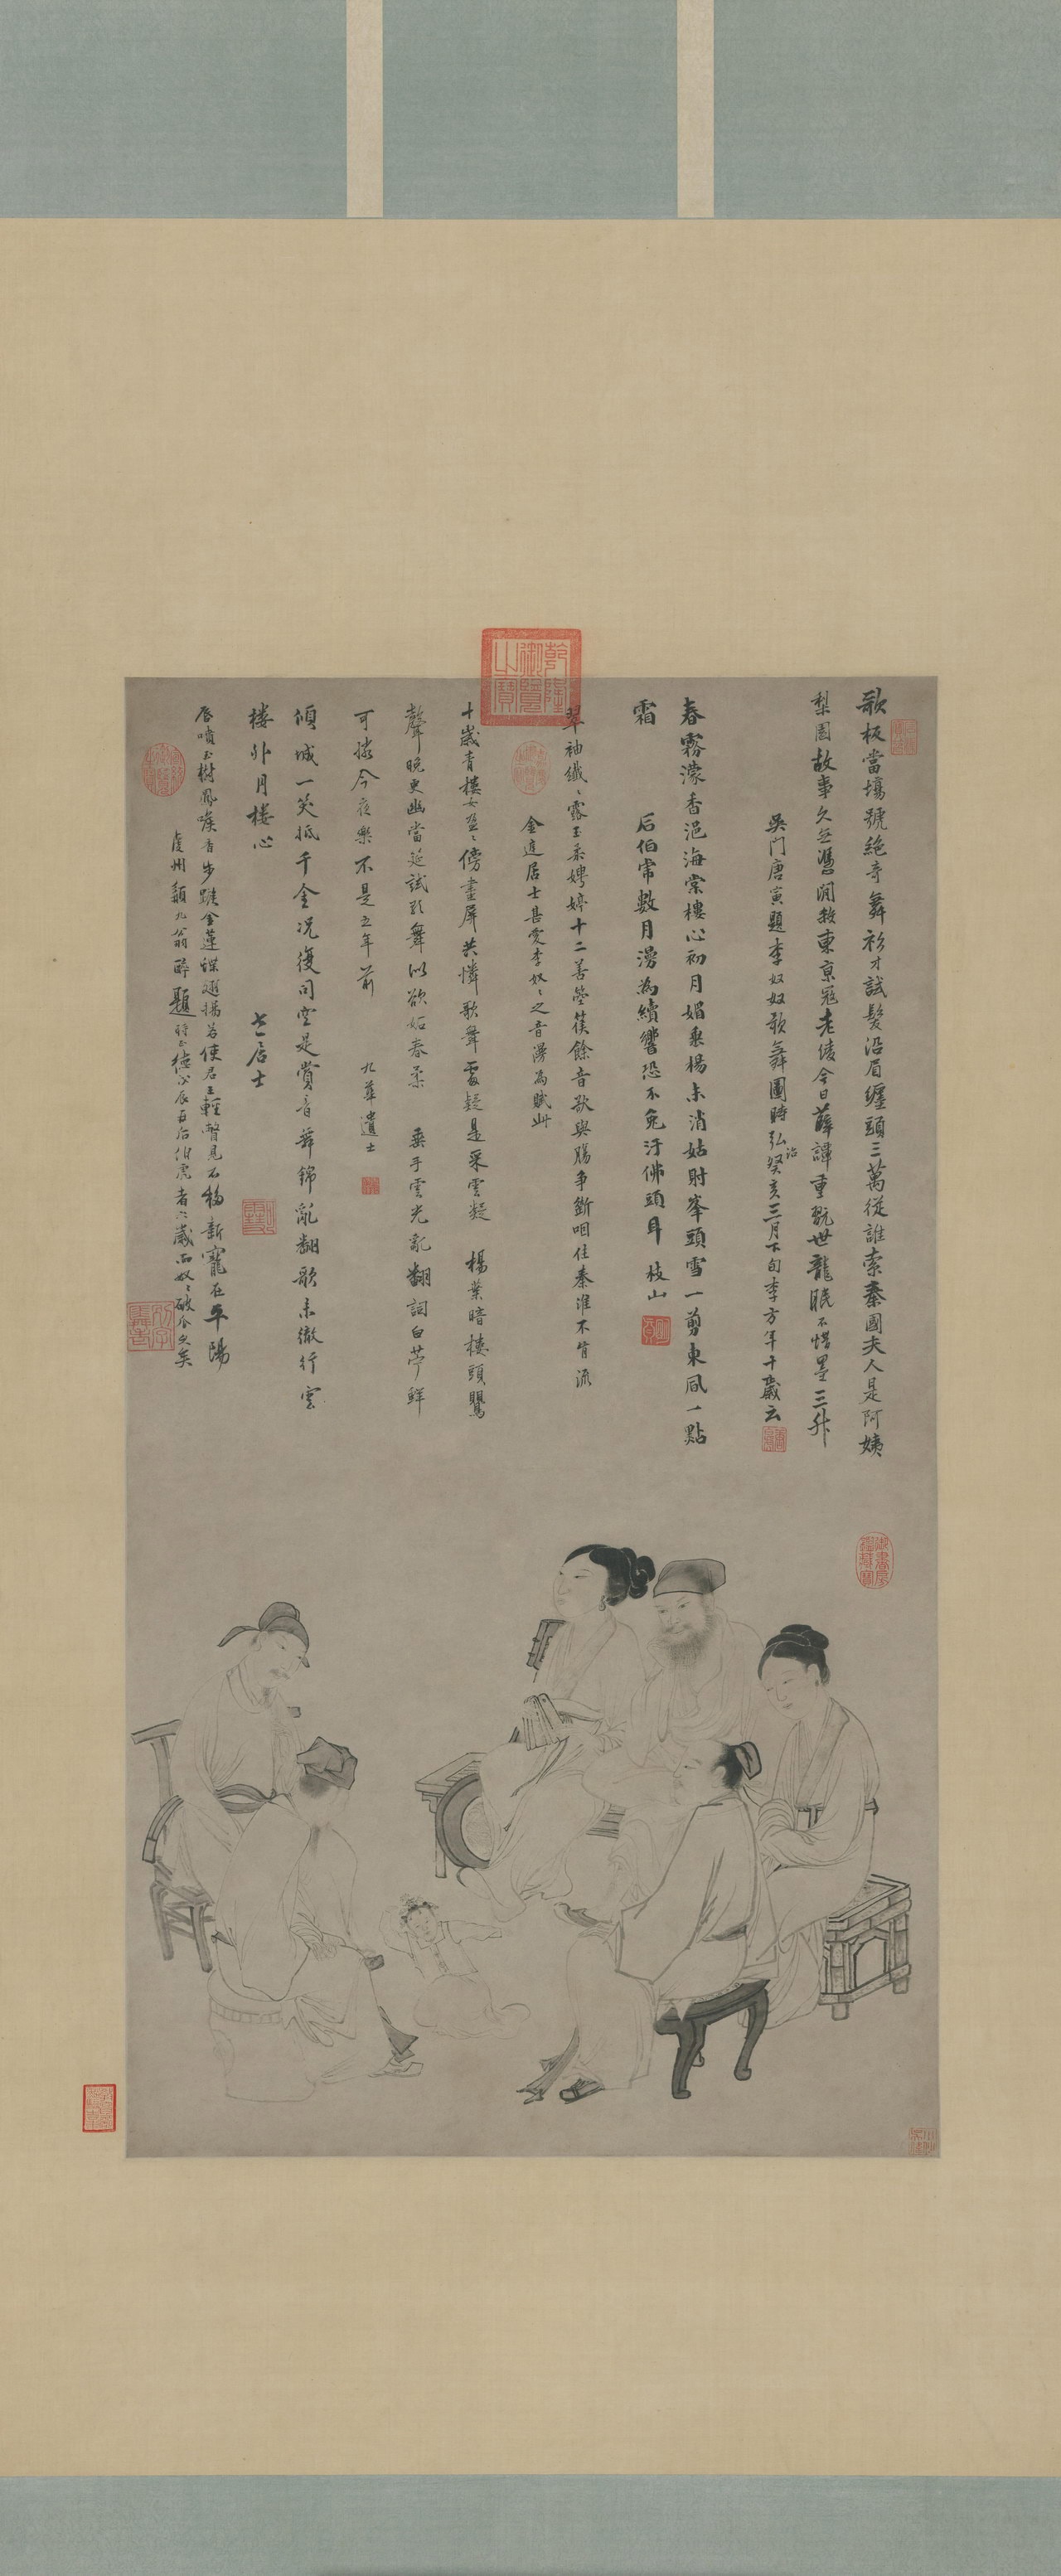 歌板當場號絕奇舞衫才試髮沿眉纏頭三萬從誰索秦國夫人是阿姨
梨園故事久無憑閒殺東京寇老綾今日薛譚重翫世龍眠不惜墨三升
吳門唐寅題李奴奴歌舞圖時弘治癸亥三月下旬李方年十歲云
春霧濛香浥海棠樓心初月媚垂楊未消姑射峯頭雪一剪東風一點
霜
后伯常數月漫為續響恐不免汙佛頭耳 枝山
翠袖纖纖露玉柔娉婷十二善箜篌餘音欲與腸爭斷咽住秦淮不肯流
金達居士甚愛李奴奴之音漫為賦此
十歲青樓女盈盈傍畫屏共憐歌舞處疑是采雲凝 楊葉暗樓頭鸎
聲晚更幽當筵試歌舞似欲妬春柔 垂手雲光亂翻詞白苧鮮
可憐今夜樂不是五年前 九華遺士
傾城一笑抵千金況復司空是賞音舞錦亂翻歌未徹行雲
樓外月樓心 七一居士
唇噴玉樹鳳喉香步蹴金蓮蝶翅揚若使君王輕瞥見不移新寵在平陽
虔州穎九翁醉題時正德戊辰五后伯虎者六歲而奴奴破瓜久矣
乾隆御覽之寶